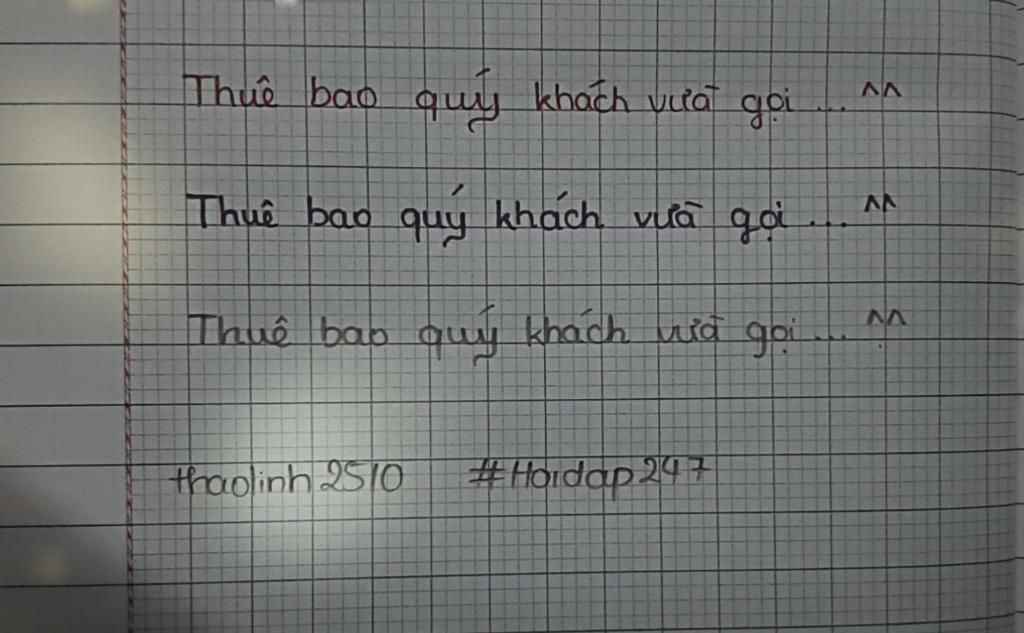 Thuê bao quý khách vừa gọi ... ^^
Thuê bao quý khách vừa gọi ... ^^
Thuê bao quý khách vừa gọi ... ^^
thaolinh2510 #Hoidap247